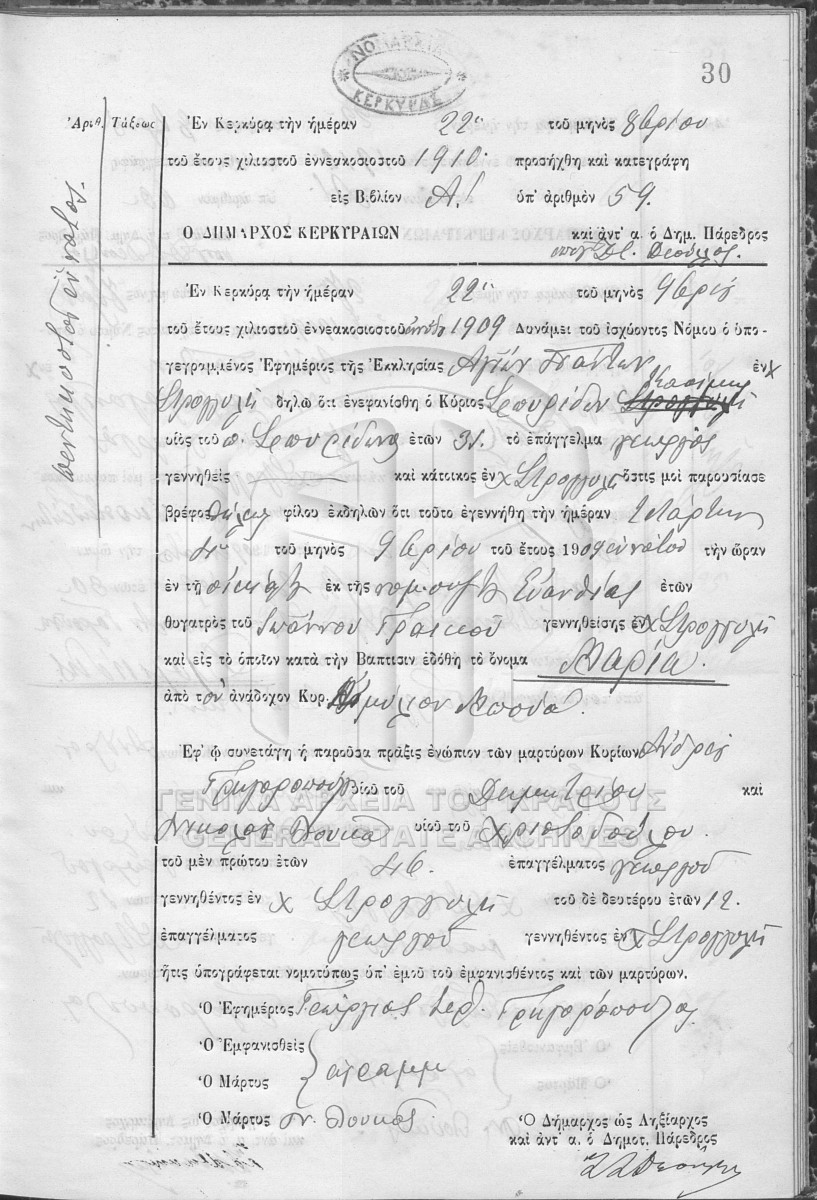 ΝΟΜΑΡΧΙΑ
ΚΕΡΚΥΡΑΣ
30
Ἀριθ. Τάξεως
πεντηκοστὸς ἔννατος
Ἐν Κερκύρᾳ τὴν ἡμέραν 22αν τοῦ μηνὸς 9βρίου
τοῦ ἔτους χιλιοστοῦ ἐννεακοσιοστοῦ 1910 προσήχθη καὶ κατεγράφη
εἰς Βιβλίον Α! ὑπ' ἀριθμὸν 59.
Ο ΔΗΜΑΡΧΟΣ ΚΕΡΚΥΡΑΙΩΝ καὶ ἀντ' α. ὁ Δημ. Πάρεδρος
Ἐν Κερκύρᾳ τὴν ἡμέραν 22αν τοῦ μηνὸς 9βρίου
τοῦ ἔτους χιλιοστοῦ ἐννεακοσιοστοῦ 1909 Δυνάμει τοῦ ἰσχύοντος Νόμου ὁ ὑπο-
γεγραμμένος Ἐφημέριος τῆς Ἐκκλησίας Ἁγίων Πάντων ἐν Χ
Στρογγυλῇ δηλῶ ὅτι ἐνεφανίσθη ὁ Κύριος Σπυρίδων
υἱὸς τοῦ π. Σπυρίδωνος ἐτῶν 31. τὸ ἐπάγγελμα γεωργὸς
γεννηθεὶς καὶ κάτοικος ἐν Χ Στρογγυλῇ ὅστις μοὶ παρουσίασε
βρέφος θήλεος φύλου ἐκδηλῶν ὅτι τοῦτο ἐγεννήθη τὴν ἡμέραν Τετάρτην
4ην τοῦ μηνὸς 9βρίου τοῦ ἔτους 1909 ἐννάτου τὴν ὥραν
ἐν τῇ οἰκίᾳ ἐκ τῆς νομ. συζ. Εὐανθίας ἐτῶν
θυγατρὸς τοῦ Ἰωάννου Γραικοῦ γεννηθείσης ἐν Χ Στρογγυλῇ
καὶ εἰς τὸ ὁποῖον κατὰ τὴν Βάπτισιν ἐδόθη τὸ ὄνομα Μαρία.
ἀπὸ τὸν ἀνάδοχον Κυρ.
Ἐφ' ᾧ συνετάγη ἡ παροῦσα πρᾶξις ἐνώπιον τῶν μαρτύρων Κυρίων Ἀνδρέου
Γρηγοροπούλου υἱοῦ τοῦ Δημητρίου καὶ
Νικολάου Λουκᾶ υἱοῦ τοῦ Χριστοδούλου.
τοῦ μὲν πρώτου ἐτῶν 46. ἐπαγγέλματος γεωργοῦ
γεννηθέντος ἐν Χ Στρογγυλῇ τοῦ δὲ δευτέρου ἐτῶν
ἐπαγγέλματος γεωργοῦ γεννηθέντος ἐν Χ Στρογγυλῇ
ἥτις ὑπογράφεται νομοτύπως ὑπ' ἐμοῦ τοῦ ἐμφανισθέντος καὶ τῶν μαρτύρων.
Ὁ Ἐφημέριος Γεώργιος Ἱερ. Γρηγορόπουλος
Ὁ Ἐμφανισθεὶς
Ὁ Μάρτυς ἀγράμμ
Ὁ Μάρτυς Ν. Λουκᾶς
Ὁ Δήμαρχος ὡς Ληξίαρχος
καὶ ἀντ' α. ὁ Δημοτ. Πάρεδρος
ΓΕΝΙΚΑ ΑΡΧΕΙΑ ΤΟΥ ΚΡΑΤΟΥΣ
GENERAL STATE ARCHIVES